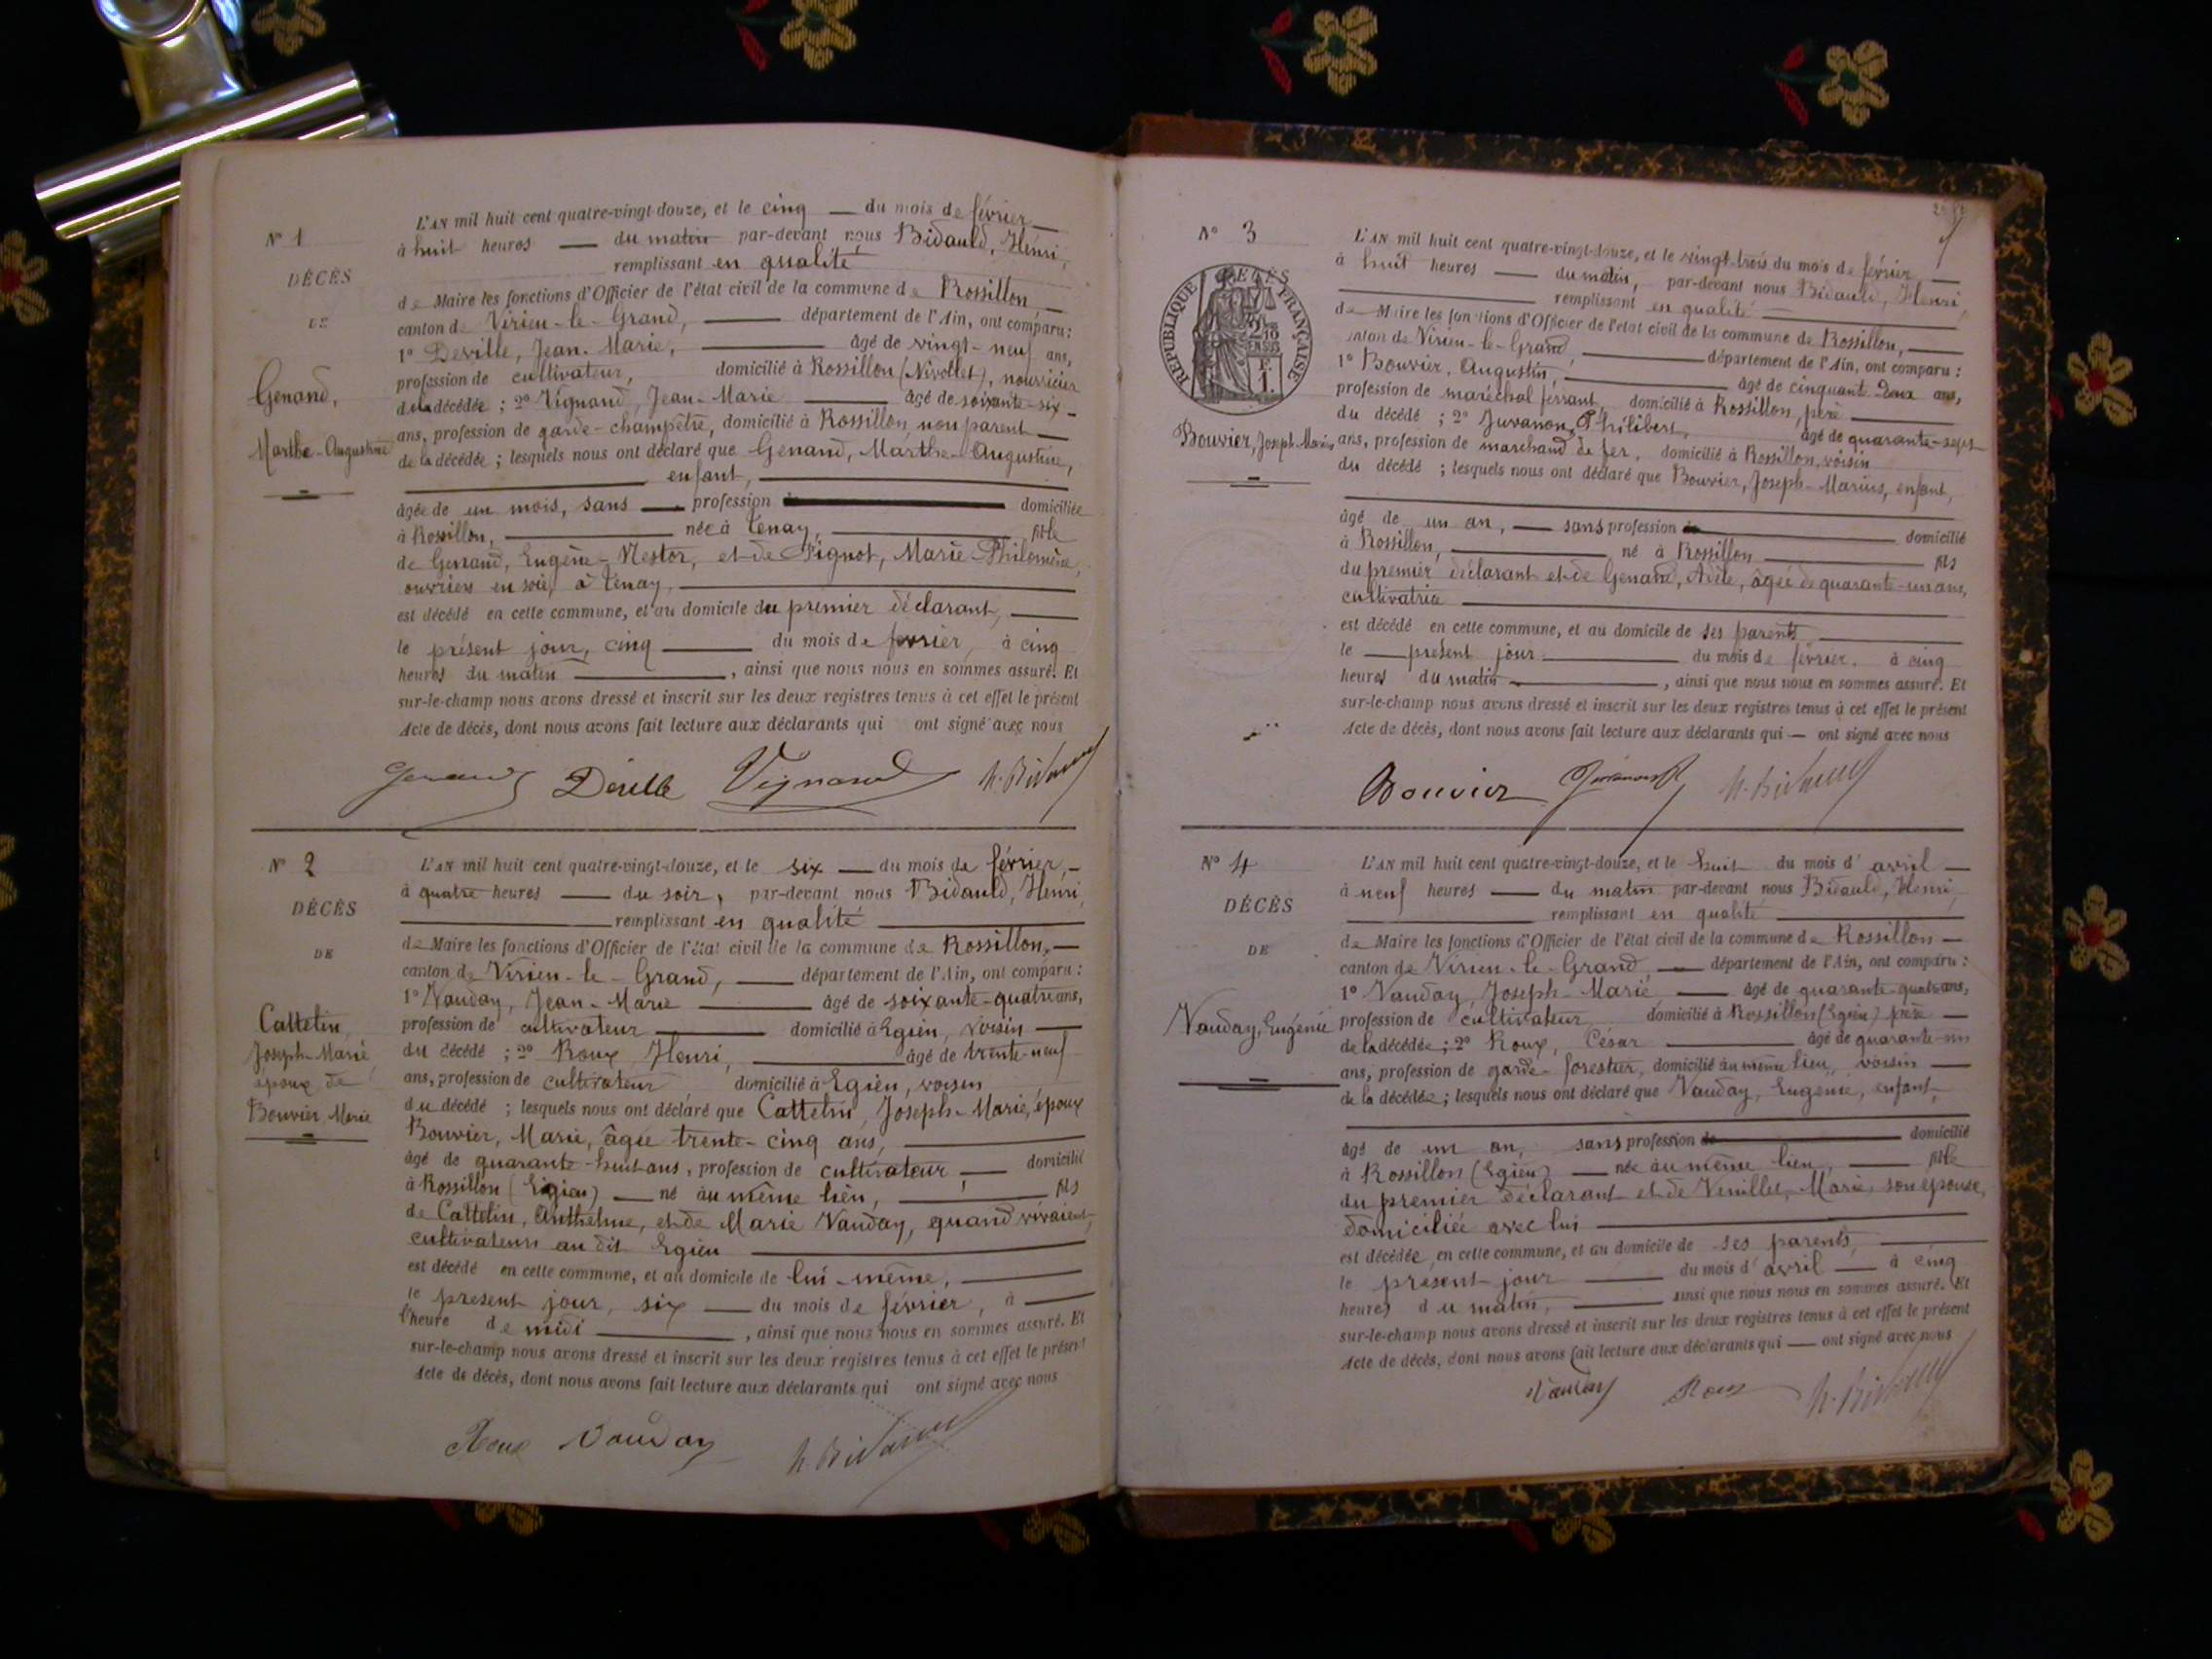 N° 1
DÉCÈS
DE
Genand,
Marthe-Augustine
L'AN mil huit cent quatre-vingt-douze, et le cinq — du mois de février —
à huit heures — du matin par-devant nous Bidauld, Henri,
remplissant en qualité
de Maire les fonctions d'Officier de l'état civil de la commune de Rossillon —
canton de Virieu-le-Grand, — département de l'Ain, ont comparu :
1° Deville, Jean-Marie, — âgé de vingt-neuf ans,
profession de cultivateur, domicilié à Rossillon (Nivollet), nourricier
de la décédée ; 2° Vignand, Jean-Marie — âgé de soixante-six
ans, profession de garde-champêtre, domicilié à Rossillon, non parent —
de la décédée ; lesquels nous ont déclaré que Genand, Marthe-Augustine,
enfant,
âgée de un mois, sans — profession de domiciliée
à Rossillon, — née à Tenay, — fille
de Genand, Eugène-Nestor, et de Pignot, Marie-Philomène,
ouvriers en soie, à Tenay, —
est décédé en cette commune, et au domicile du premier déclarant, —
le présent jour, cinq — du mois de février, à cinq
heures du matin —, ainsi que nous nous en sommes assuré. Et
sur-le-champ nous avons dressé et inscrit sur les deux registres tenus à cet effet le présent
Acte de décès, dont nous avons fait lecture aux déclarants qui ont signé avec nous
Genand Deville Vignand H. Bidauld
N° 2
DÉCÈS
DE
Cattelin,
Joseph-Marie,
époux de
Bouvier, Marie
L'AN mil huit cent quatre-vingt-douze, et le six — du mois de février, —
à quatre heures — du soir, par-devant nous Bidauld, Henri,
remplissant en qualité
de Maire les fonctions d'Officier de l'état civil de la commune de Rossillon, —
canton de Virieu-le-Grand, — département de l'Ain, ont comparu :
1° Vauday, Jean-Marie — âgé de soixante-quatre ans,
profession de cultivateur — domicilié à Egieu, voisin —
du décédé ; 2° Roux, Henri, — âgé de trente-neuf
ans, profession de cultivateur domicilié à Egieu, voisin
du décédé ; lesquels nous ont déclaré que Cattelin, Joseph-Marie, époux
Bouvier, Marie, âgée trente-cinq ans, —
âgé de quarante-huit ans, profession de cultivateur, — domicilié
à Rossillon (Egieu) — né au même lieu, — fils
de Cattelin, Anthelme, et de Marie Vauday, quand vivaient,
cultivateurs au dit Egieu —
est décédé en cette commune, et au domicile de lui-même, —
le présent jour, six — du mois de février, à —
l'heure de midi —, ainsi que nous nous en sommes assuré. Et
sur-le-champ nous avons dressé et inscrit sur les deux registres tenus à cet effet le présent
Acte de décès, dont nous avons fait lecture aux déclarants qui ont signé avec nous
Roux Vauday H. Bidauld
N° 3
RÉPUBLIQUE FRANÇAISE
Bouvier, Joseph-Marius
L'AN mil huit cent quatre-vingt-douze, et le vingt-trois du mois de février —
à huit heures — du matin, par-devant nous Bidauld, Henri,
remplissant en qualité —
de Maire les fonctions d'Officier de l'état civil de la commune de Rossillon, —
canton de Virieu-le-Grand, — département de l'Ain, ont comparu :
1° Bouvier, Augustin, — âgé de cinquante-deux ans,
profession de maréchal ferrant, domicilié à Rossillon, père —
du décédé ; 2° Juvanon, Philibert, âgé de quarante-sept
ans, profession de marchand de fer, domicilié à Rossillon, voisin
du décédé ; lesquels nous ont déclaré que Bouvier, Joseph-Marius, enfant,
âgé de un an, — sans profession de domicilié
à Rossillon, — né à Rossillon — fils
du premier déclarant et de Genand, Adèle, âgée de quarante-un ans,
cultivatrice —
est décédé en cette commune, et au domicile de ses parents —
le — présent jour — du mois de février. à cinq
heures du matin —, ainsi que nous nous en sommes assuré. Et
sur-le-champ nous avons dressé et inscrit sur les deux registres tenus à cet effet le présent
Acte de décès, dont nous avons fait lecture aux déclarants qui — ont signé avec nous
Bouvier Juvanon H. Bidauld
N° 4
DÉCÈS
DE
Vauday, Eugénie
L'AN mil huit cent quatre-vingt-douze, et le huit du mois d'avril —
à neuf heures — du matin par-devant nous Bidauld, Henri,
remplissant en qualité —
de Maire les fonctions d'Officier de l'état civil de la commune de Rossillon —
canton de Virieu-le-Grand, — département de l'Ain, ont comparu :
1° Vauday, Joseph-Marie, — âgé de quarante-quatre ans,
profession de cultivateur domicilié à Rossillon (Egieu) père —
de la décédée ; 2° Roux, César — âgé de quarante-un
ans, profession de garde-forestier, domicilié au même lieu, voisin —
de la décédée ; lesquels nous ont déclaré que Vauday, Eugénie, enfant,
âgé de un an, sans profession de domicilié
à Rossillon (Egieu) — née au même lieu, — fille
du premier déclarant et de Venillet, Marie, son épouse,
domiciliée avec lui —
est décédée en cette commune, et au domicile de ses parents, —
le présent jour — du mois d'avril — à cinq
heures du matin, — ainsi que nous nous en sommes assuré. Et
sur-le-champ nous avons dressé et inscrit sur les deux registres tenus à cet effet le présent
Acte de décès, dont nous avons fait lecture aux déclarants qui — ont signé avec nous
Vauday Roux H. Bidauld